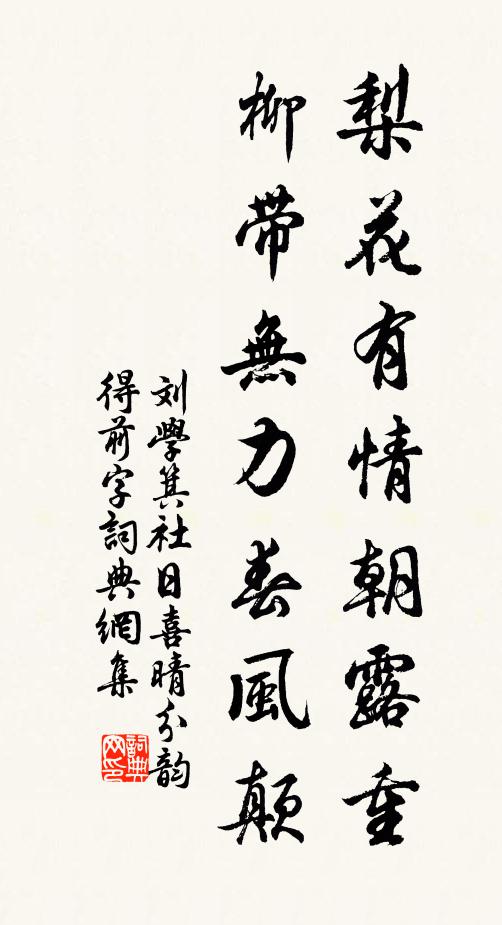 梨花有情朝露重
柳帶無力春風顛
刘學箕社日喜晴分韵
得前字詞典網集
詞典网印